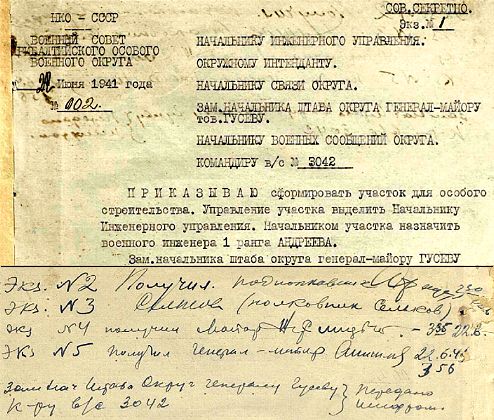 НКО – СССР
СОВ.СЕКРЕТНО.
Экз.№ 1
ВОЕННЫЙ СОВЕТ
РИБАЛТИЙСКОГО ОСОБОГО
ВОЕННОГО ОКРУГА
22 Июня 1941 года
№ 002.
НАЧАЛЬНИКУ ИНЖЕНЕРНОГО УПРАВЛЕНИЯ.
ОКРУЖНОМУ ИНТЕНДАНТУ.
НАЧАЛЬНИКУ СВЯЗИ ОКРУГА.
ЗАМ.НАЧАЛЬНИКА ШТАБА ОКРУГА ГЕНЕРАЛ-МАЙОРУ
тов.ГУСЕВУ.
НАЧАЛЬНИКУ ВОЕННЫХ СООБЩЕНИЙ ОКРУГА.
КОМАНДИРУ в/с № 3042
ПРИКАЗЫВАЮ сформировать участок для особого
строительства. Управление участка выделить Начальнику
Инженерного управления. Начальником участка назначить
военного инженера 1 ранга АНДРЕЕВА.
Зам.начальника штаба округа генерал-майору ГУСЕВУ
Экз. №2 Получил подполковник
Экз. №3 (полковник
экз №4 получил Майор – 335 22.6.
экз №5 получил генерал-майор 22.6.41
3 56
Зам нач Штаба Округа генералу Гусеву
К-ру в/с 3042
Передано
шифром.